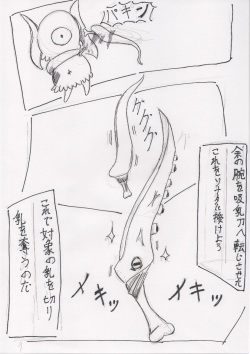 パキン
グググ
余の腕を吸乳刀へ転じさせた
これをリナに授けよう
メキッ
メキッ
これで対象の乳を切り
乳を奪うのだ